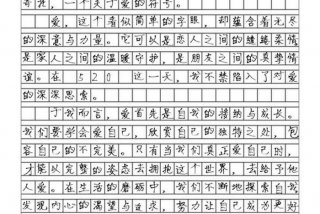 奇花，一个关于爱的符号。
爱，这个看似简单的字眼，却蕴含着无尽
的深意与力量。它可以是恋人之间的缠绵柔情
是家人之间的温暖守护，是朋友之间的真挚情
谊。在520这一天，我不禁陷入了对爱
的深深思索。
于我而言，爱首先是自我的接纳与成长。
我们要学会爱自己，欣赏自己的独特之处，包
容自己的不完美。只有当我们能够拥抱自己，
才能以完整的姿态去拥抱这个世界，去给予他
人爱。在生活的磨砺中，我们不断地探索自我
发现内心的渴望与追求，努力让自己成为更好